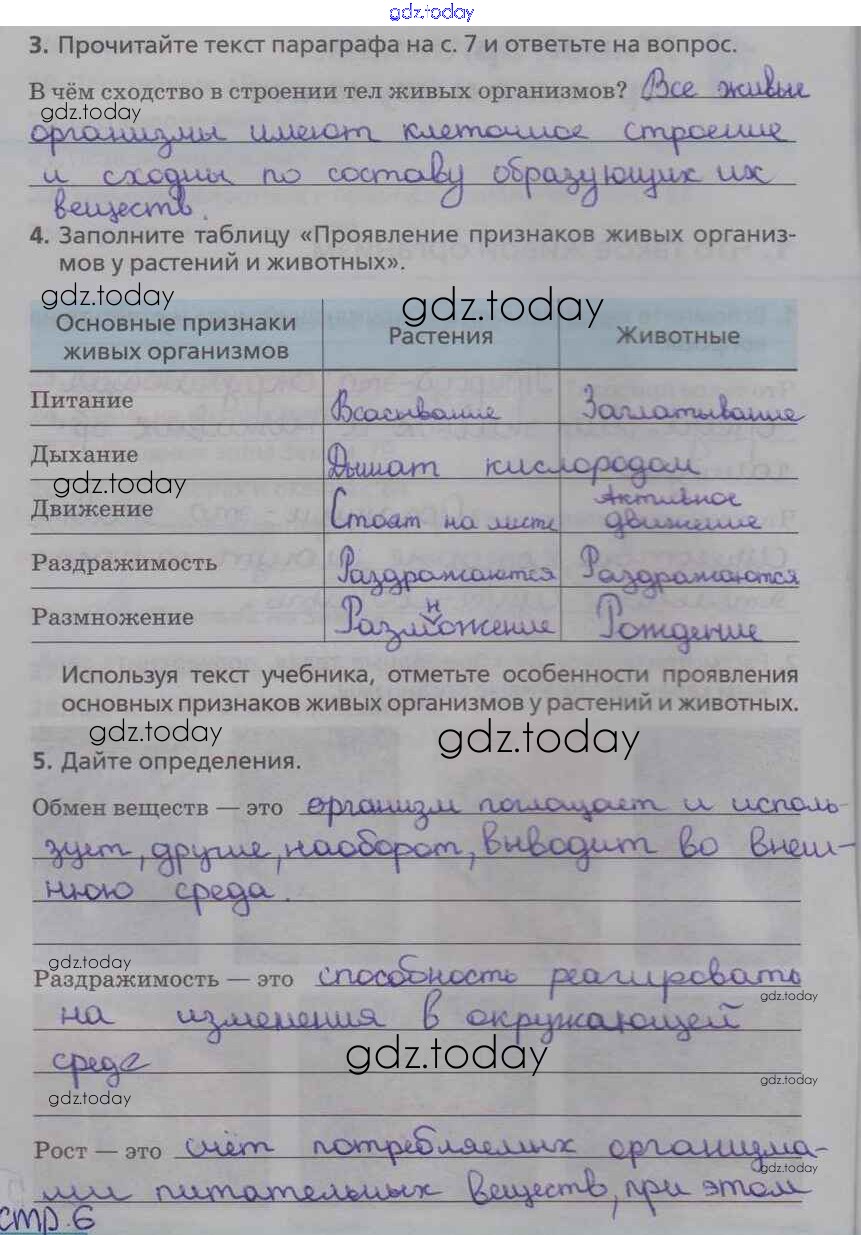 gdz.today
3. Прочитайте текст параграфа на с. 7 и ответьте на вопрос.
В чём сходство в строении тел живых организмов? Все живые
gdz.today
организмы имеют клеточное строение
и сходны по составу образующих их
веществ.
4. Заполните таблицу «Проявление признаков живых организ-
мов у растений и животных».
gdz.today gdz.today
Основные признаки живых организмов Растения Животные
Питание Всасывание Заглатывание
Дыхание Дышат кислородом
gdz.today
Движение Стоят на месте Активное движение
Раздражимость Раздражаются Раздражаются
Размножение Размножение Рождение
Используя текст учебника, отметьте особенности проявления
основных признаков живых организмов у растений и животных.
gdz.today gdz.today
5. Дайте определения.
Обмен веществ — это организм поглощает и исполь-
зует, другие, наоборот, выводит во внеш-
нюю среда.
gdz.today
Раздражимость — это способность реагировать
gdz.today
на изменения в окружающей
среде gdz.today
gdz.today
gdz.today
Рост — это счёт потребляемых организма-
gdz.today
ми питательных веществ, при этом
стр. 6